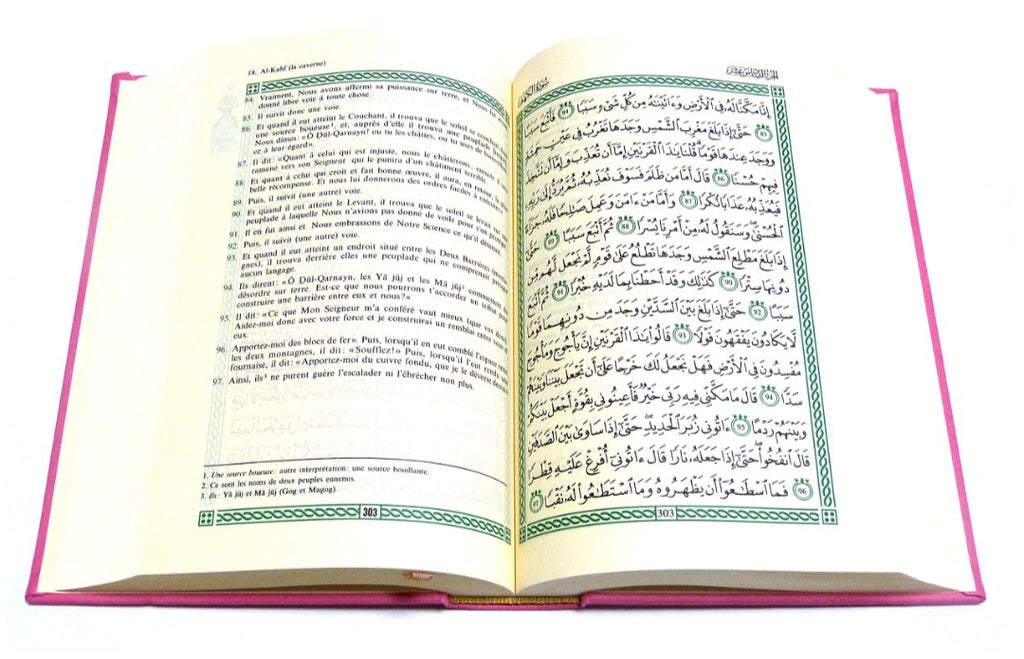 18. Al-Kahf (la caverne)
84. Vraiment, Nous avons affermi sa puissance sur terre, et Nous lui
donné libre voie à toute chose.
85. Il suivit donc une voie.
86. Et quand il eut atteint le Couchant, il trouva que le soleil se couchait
une source boueuse¹, et, auprès d'elle il trouva une peuplade
Nous dîmes: «Ô Dûl-Qarnayn! ou tu les châties, ou tu uses de
ce à leur égard».
87. Il dit: «Quant à celui qui est injuste, nous le châtierons; ensuite il
ramené vers son Seigneur qui le punira d'un châtiment terrible.
88. Et quant à celui qui croit et fait bonne œuvre, il aura, en retour, la
belle récompense. Et nous lui donnerons des ordres faciles à
89. Puis, il suivit (une autre) voie.
90. Et quand il eut atteint le Levant, il trouva que le soleil se levait sur
peuplade à laquelle Nous n'avions pas donné de voile pour s'en
91. Il en fut ainsi et. Nous embrassons de Notre Science ce qu'il
92. Puis, il suivit (une autre) voie.
93. Et quand il eut atteint un endroit situé entre les Deux Barrières
gnes), il trouva derrière elles une peuplade qui ne comprenait
aucun langage.
94. Ils dirent: «Ô Dûl-Qarnayn, les Yā jūj et les Mā jūj²
désordre sur terre. Est-ce que nous pourrons t'accorder un tribut
construire une barrière entre eux et nous?»
95. Il dit: «Ce que Mon Seigneur m'a conféré vaut mieux (que vos
Aidez-moi donc avec votre force et je construirai un remblai entre vous
eux.
96. Apportez-moi des blocs de fer». Puis, lorsqu'il en eut comblé l'espace
les deux montagnes, il dit: «Soufflez!» Puis, lorsqu'il l'eut rendu une
fournaise, il dit: «Apportez-moi du cuivre fondu, que je le déverse dessus».
97. Ainsi, ils³ ne purent guère l'escalader ni l'ébrécher non plus.
1. Une source boueuse: autre interprétation: une source bouillante.
2. Ce sont les noms de deux peuples ennemis.
3. Ils: Yā jūj et Mā jūj (Gog et Magog).
303
سُورَةُ الكَهْف الجزء السادس عشر
إِنَّا مَكَّنَّا لَهُۥ فِي ٱلْأَرْضِ وَءَاتَيْنَٰهُ مِن كُلِّ شَىْءٍ سَبَبًا ٨٤ فَأَتْبَعَ سَبَبًا
٨٥ حَتَّىٰٓ إِذَا بَلَغَ مَغْرِبَ ٱلشَّمْسِ وَجَدَهَا تَغْرُبُ فِي عَيْنٍ حَمِئَةٍ
وَوَجَدَ عِندَهَا قَوْمًا ۗ قُلْنَا يَٰذَا ٱلْقَرْنَيْنِ إِمَّآ أَن تُعَذِّبَ وَإِمَّآ أَن تَتَّخِذَ
فِيهِمْ حُسْنًا ٨٦ قَالَ أَمَّا مَن ظَلَمَ فَسَوْفَ نُعَذِّبُهُۥ ثُمَّ يُرَدُّ إِلَىٰ رَبِّهِۦ
فَيُعَذِّبُهُۥ عَذَابًا نُّكْرًا ٨٧ وَأَمَّا مَنْ ءَامَنَ وَعَمِلَ صَٰلِحًا فَلَهُۥ جَزَآءً
ٱلْحُسْنَىٰ ۖ وَسَنَقُولُ لَهُۥ مِنْ أَمْرِنَا يُسْرًا ٨٨ ثُمَّ أَتْبَعَ سَبَبًا ٨٩ حَتَّىٰٓ
إِذَا بَلَغَ مَطْلِعَ ٱلشَّمْسِ وَجَدَهَا تَطْلُعُ عَلَىٰ قَوْمٍ لَّمْ نَجْعَل لَّهُم مِّن
دُونِهَا سِتْرًا ٩٠ كَذَٰلِكَ وَقَدْ أَحَطْنَا بِمَا لَدَيْهِ خُبْرًا ٩١ ثُمَّ أَتْبَعَ
سَبَبًا ٩٢ حَتَّىٰٓ إِذَا بَلَغَ بَيْنَ ٱلسَّدَّيْنِ وَجَدَ مِن دُونِهِمَا قَوْمًا
لَّا يَكَادُونَ يَفْقَهُونَ قَوْلًا ٩٣ قَالُوا۟ يَٰذَا ٱلْقَرْنَيْنِ إِنَّ يَأْجُوجَ وَمَأْجُوجَ
مُفْسِدُونَ فِي ٱلْأَرْضِ فَهَلْ نَجْعَلُ لَكَ خَرْجًا عَلَىٰٓ أَن تَجْعَلَ بَيْنَنَا وَبَيْنَهُمْ
سَدًّا ٩٤ قَالَ مَا مَكَّنِّي فِيهِ رَبِّي خَيْرٌ فَأَعِينُونِي بِقُوَّةٍ أَجْعَلْ بَيْنَكُمْ
وَبَيْنَهُمْ رَدْمًا ٩٥ ءَاتُونِي زُبَرَ ٱلْحَدِيدِ ۖ حَتَّىٰٓ إِذَا سَاوَىٰ بَيْنَ ٱلصَّدَفَيْنِ
قَالَ ٱنفُخُوا۟ ۖ حَتَّىٰٓ إِذَا جَعَلَهُۥ نَارًا قَالَ ءَاتُونِيٓ أُفْرِغْ عَلَيْهِ قِطْرًا
٩٦ فَمَا ٱسْطَٰعُوٓا۟ أَن يَظْهَرُوهُ وَمَا ٱسْتَطَٰعُوا۟ لَهُۥ نَقْبًا ٩٧
303